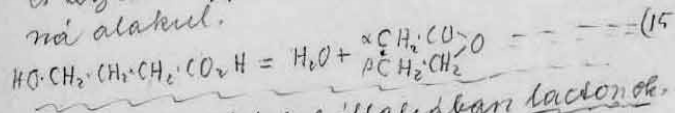 ná alakul.
HO·CH₂·CH₂·CH₂·CO₂H = H₂O + αCH₂·CO
βCH₂·CH₂ O - - - - (15
lactonok.